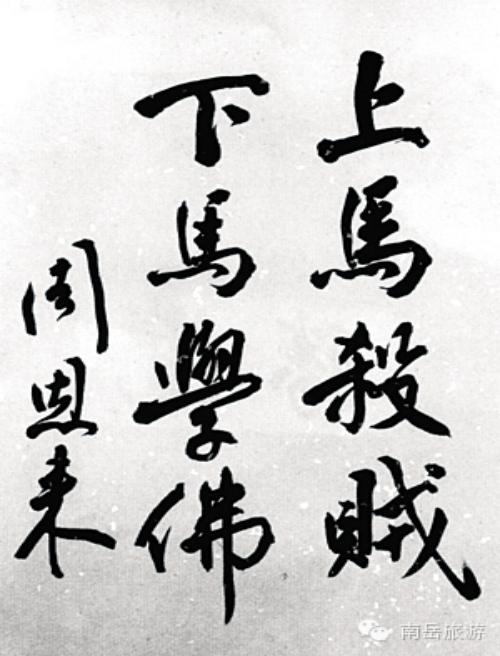 上馬殺賊
下馬學佛
周恩来
南岳旅游